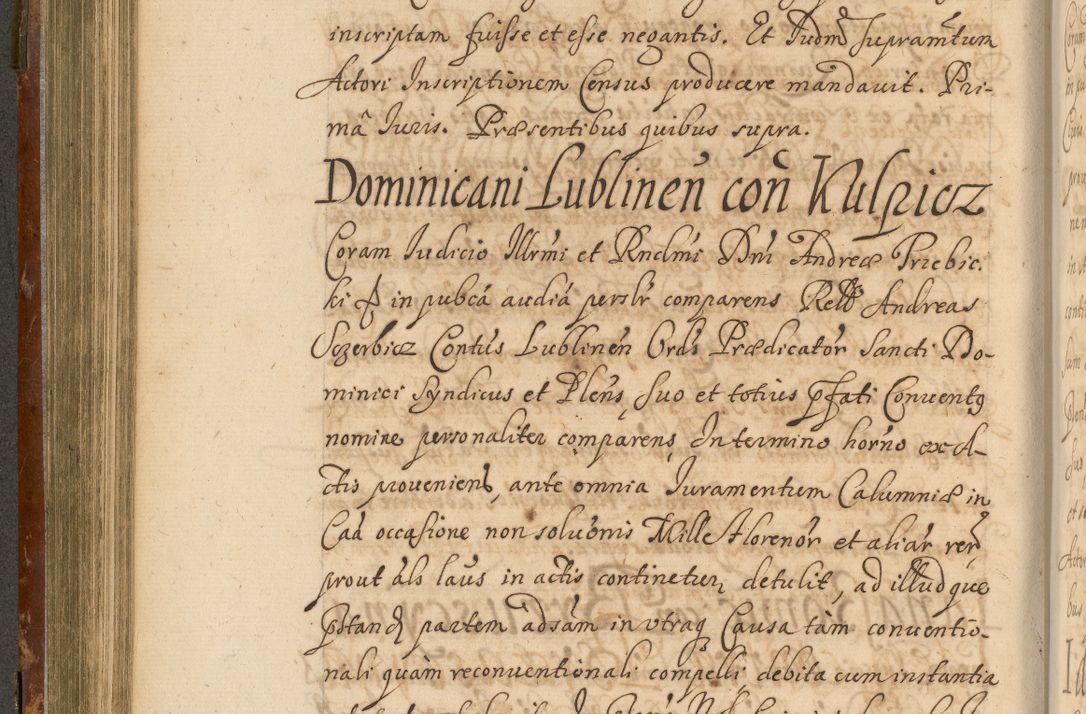 inscriptam fuisse et esse negantis. Et Iudm̃ supram̃tum
Actori Inscriptionem Census producere mandauit. Pri-
mâ Iuris. Præsentibus quibus supra.
Dominicani Lublineñ coñ Kulpicz
Coram Iudicio Illrmi et Rndmi Dni Andreæ Trzebic.
ki in pubcá audiá perslr comparens Andreas
Sczerbicz Contûs Lublinen Ords Prædicator Sancti Do-
minici Syndicus et Plens, suo et totius pfati Conuentq
nomine personaliter comparens, In termino horno ex A-
ctis proueniens, ante omnia Iuramentum Calumniæ in
Caa occasione non solutionis Mille florenor et aliar rer
prout als laus in actis continetur, detulit, ad illudque
pstand partem adsam in vtraq Causa tam conuentio-
nali quàm reconuentionali compelli debita cum instantia